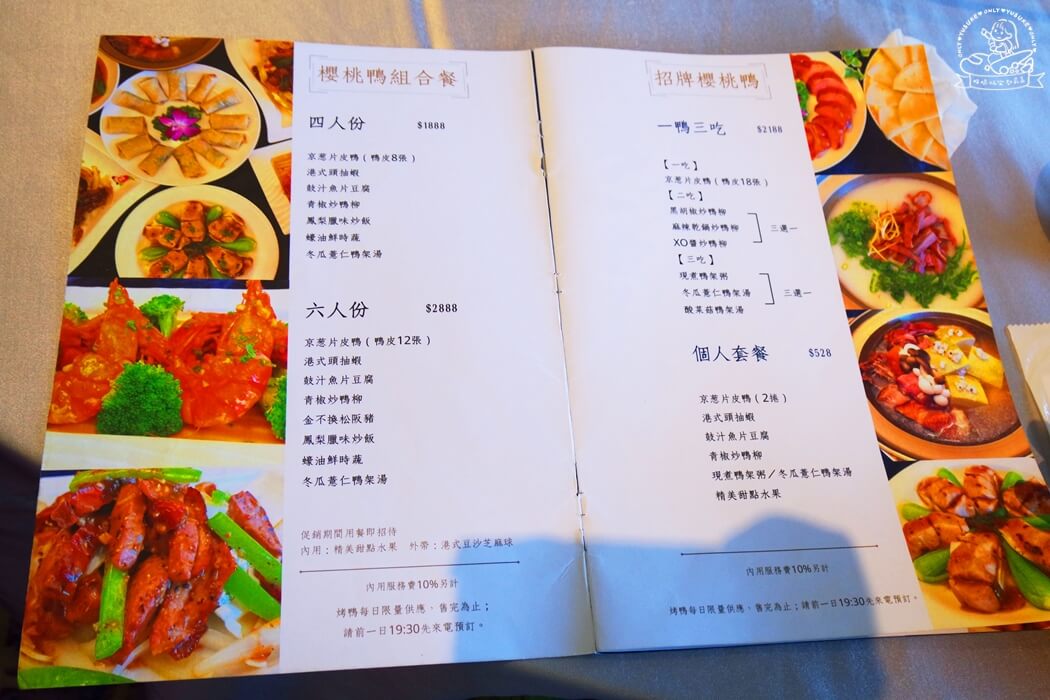 櫻桃鴨組合餐
四人份 $1888
京葱片皮鴨(鴨皮8張)
港式頭抽蝦
鼓汁魚片豆腐
青椒炒鴨柳
鳳梨臘味炒飯
蠔油鮮時蔬
冬瓜薏仁鴨架湯
六人份 $2888
京葱片皮鴨(鴨皮12張)
港式頭抽蝦
鼓汁魚片豆腐
青椒炒鴨柳
金不換松阪豬
鳳梨臘味炒飯
蠔油鮮時蔬
冬瓜薏仁鴨架湯
促銷期間用餐即招待
內用:精美甜點水果 外帶:港式豆沙芝麻球
內用服務費10%另計
烤鴨每日限量供應、售完為止;
請前一日19:30先來電預訂。
招牌櫻桃鴨
一鴨三吃 $2188
【一吃】
京葱片皮鴨(鴨皮18張)
【二吃】
黑胡椒炒鴨柳
麻辣乾鍋炒鴨柳 三選一
XO醬炒鴨柳
【三吃】
現煮鴨架粥
冬瓜薏仁鴨架湯 三選一
酸菜菇鴨架湯
個人套餐 $528
京葱片皮鴨(2捲)
港式頭抽蝦
鼓汁魚片豆腐
青椒炒鴨柳
現煮鴨架粥/冬瓜薏仁鴨架湯
精美甜點水果
內用服務費10%另計
烤鴨每日限量供應、售完為止;請前一日19:30先來電預訂。
ONLY♥YUSUKE♥ONLY♥YUSUKE♥ONLY